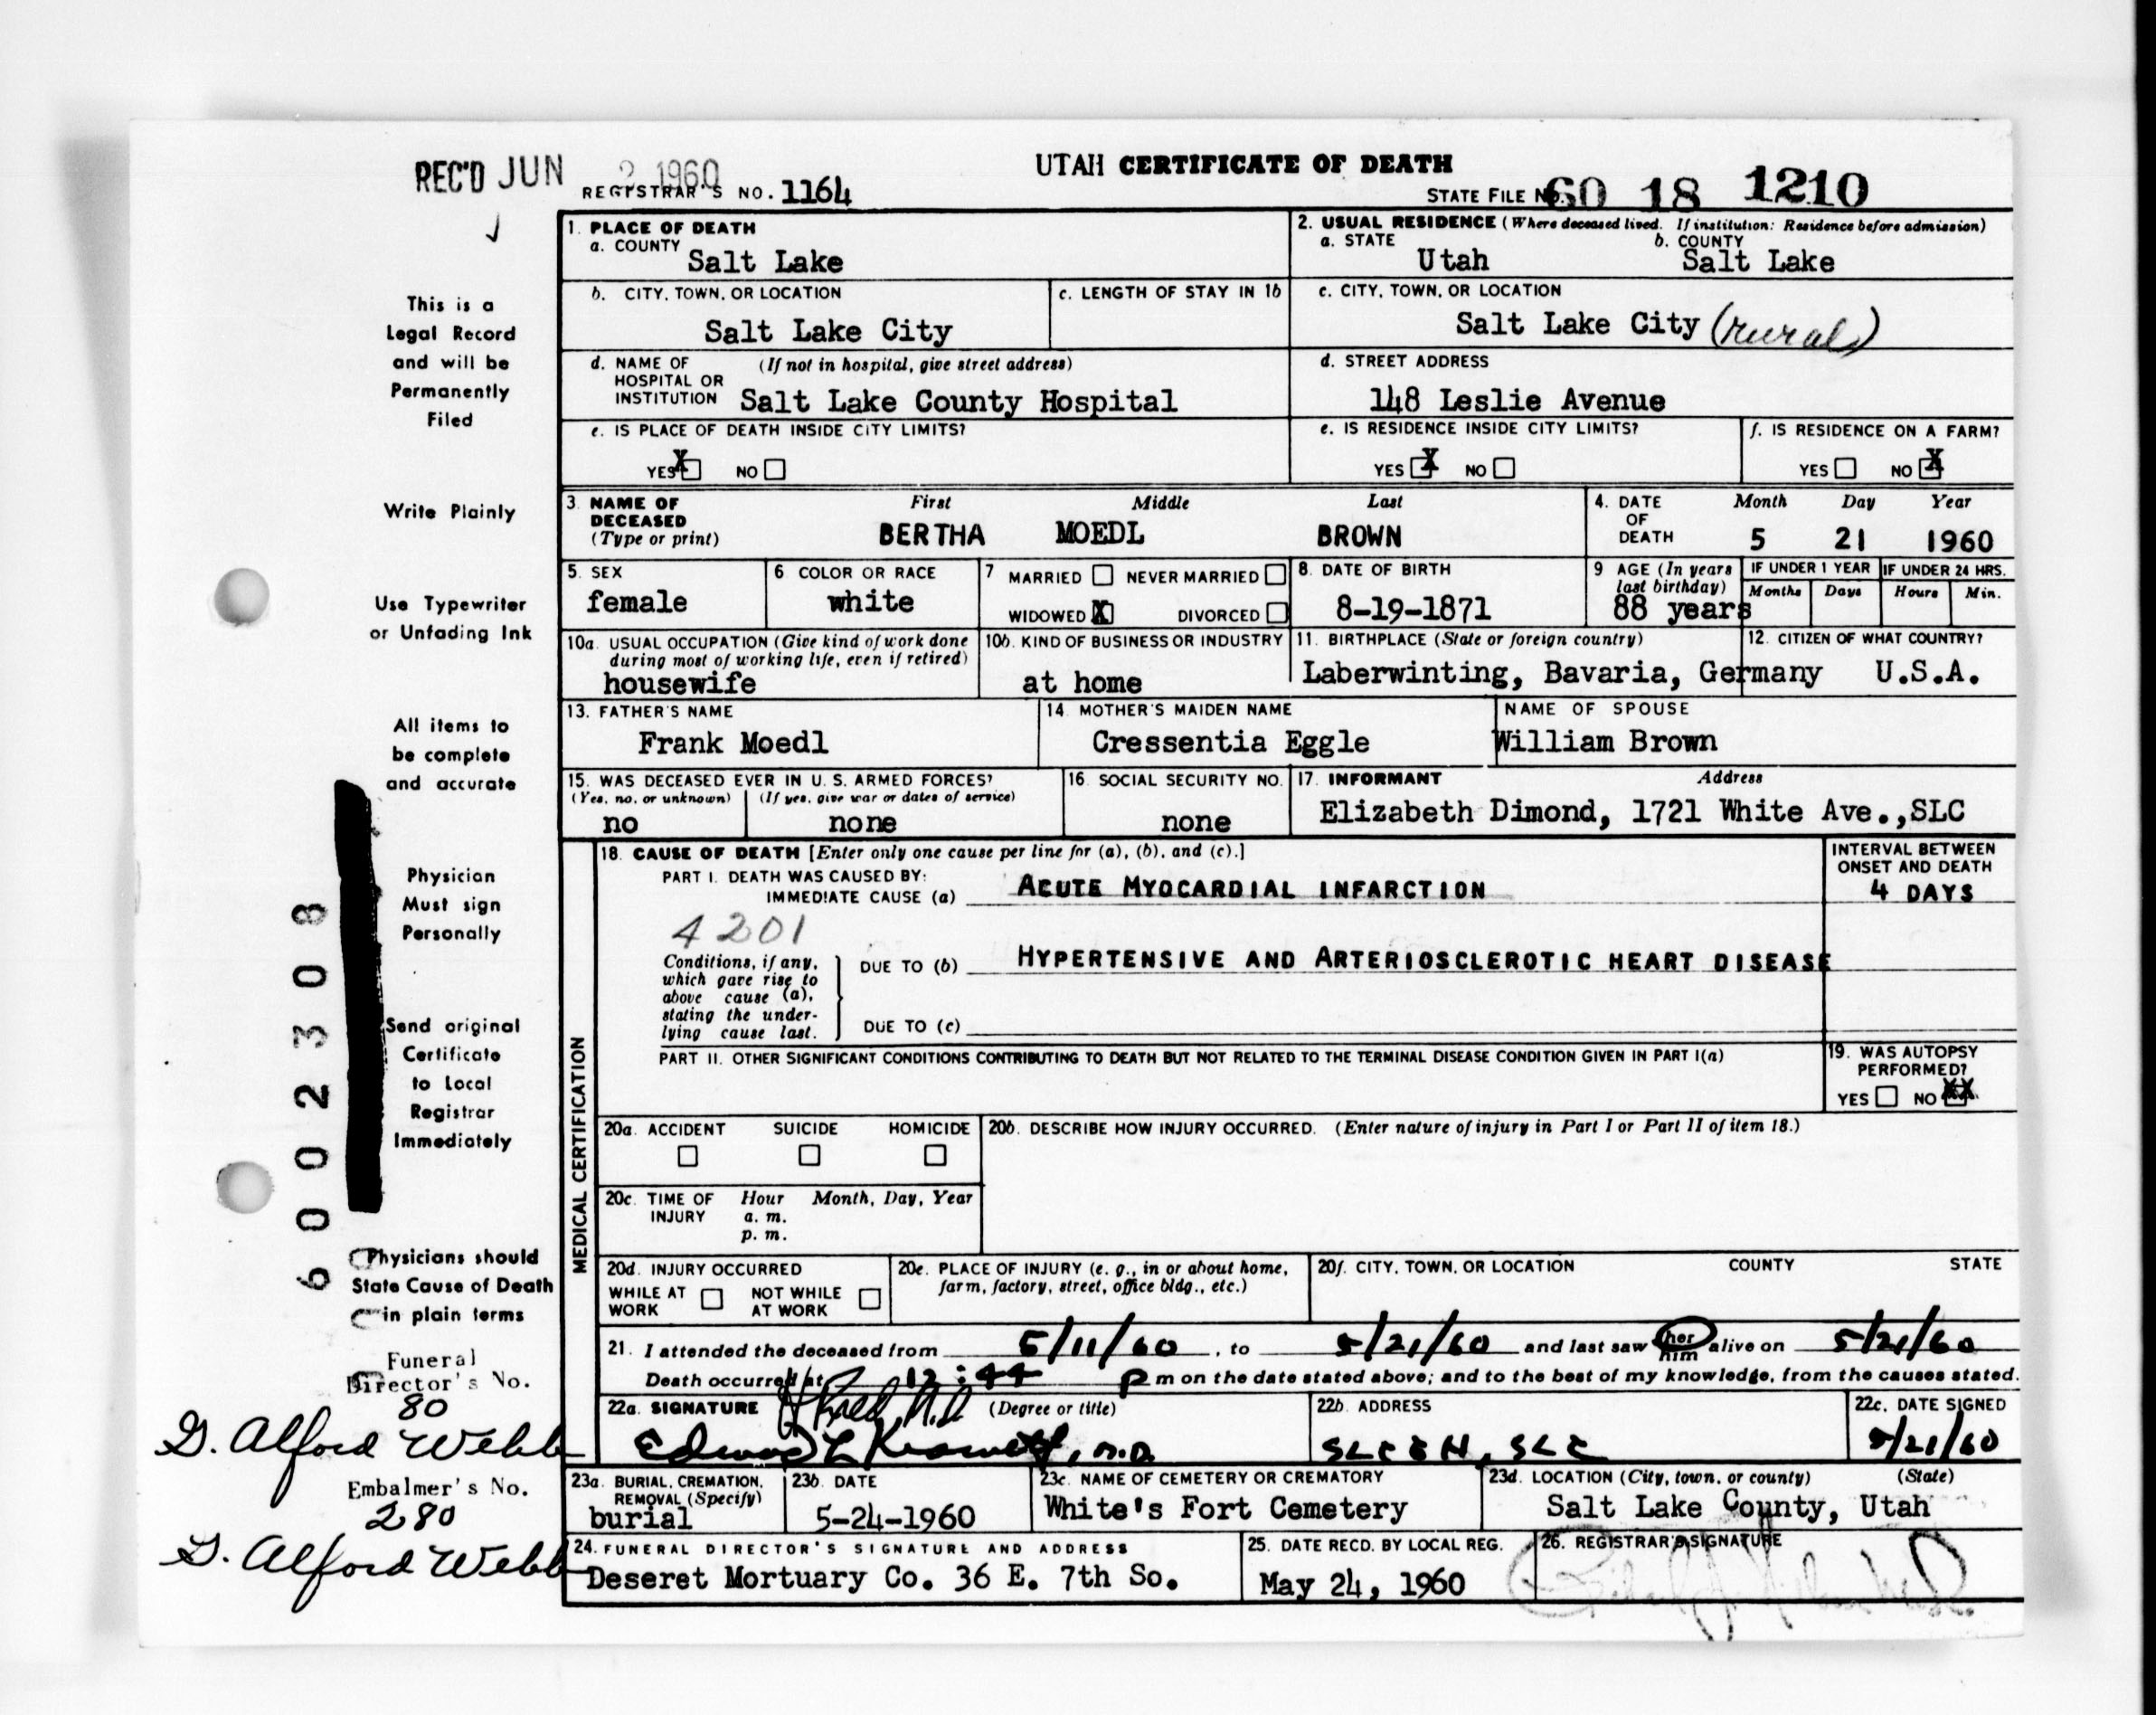 REC'D JUN 2 1960
UTAH CERTIFICATE OF DEATH
REGISTRAR'S NO. 1164
STATE FILE NO. 60 18 1210
1. PLACE OF DEATH
a. COUNTY
Salt Lake
2. USUAL RESIDENCE (Where deceased lived. If institution: Residence before admission)
a. STATE b. COUNTY
Utah Salt Lake
b. CITY, TOWN, OR LOCATION
Salt Lake City
c. LENGTH OF STAY IN 1b
c. CITY, TOWN, OR LOCATION
Salt Lake City (rural)
d. NAME OF (If not in hospital, give street address)
HOSPITAL OR
INSTITUTION Salt Lake County Hospital
d. STREET ADDRESS
148 Leslie Avenue
e. IS PLACE OF DEATH INSIDE CITY LIMITS?
YES X NO
e. IS RESIDENCE INSIDE CITY LIMITS?
YES X NO
f. IS RESIDENCE ON A FARM?
YES NO X
3. NAME OF DECEASED (Type or print)
First Middle Last
BERTHA MOEDL BROWN
4. DATE OF DEATH
Month Day Year
5 21 1960
5. SEX
female
6 COLOR OR RACE
white
7 MARRIED NEVER MARRIED
WIDOWED X DIVORCED
8. DATE OF BIRTH
8-19-1871
9 AGE (In years last birthday)
88 years
IF UNDER 1 YEAR IF UNDER 24 HRS.
Months Days Hours Min.
10a. USUAL OCCUPATION (Give kind of work done
during most of working life, even if retired)
housewife
10b. KIND OF BUSINESS OR INDUSTRY
at home
11. BIRTHPLACE (State or foreign country)
Laberwinting, Bavaria, Germany
12. CITIZEN OF WHAT COUNTRY?
U.S.A.
13. FATHER'S NAME
Frank Moedl
14. MOTHER'S MAIDEN NAME
Cressentia Eggle
NAME OF SPOUSE
William Brown
15. WAS DECEASED EVER IN U. S. ARMED FORCES?
(Yes, no, or unknown) (If yes, give war or dates of service)
no none
16. SOCIAL SECURITY NO.
none
17. INFORMANT Address
Elizabeth Dimond, 1721 White Ave.,SLC
MEDICAL CERTIFICATION
18. CAUSE OF DEATH [Enter only one cause per line for (a), (b), and (c).]
PART I. DEATH WAS CAUSED BY:
IMMEDIATE CAUSE (a) ACUTE MYOCARDIAL INFARCTION
INTERVAL BETWEEN
ONSET AND DEATH
4 DAYS
4201
Conditions, if any,
which gave rise to
above cause (a),
stating the under-
lying cause last.
DUE TO (b) HYPERTENSIVE AND ARTERIOSCLEROTIC HEART DISEASE
DUE TO (c)
PART II. OTHER SIGNIFICANT CONDITIONS CONTRIBUTING TO DEATH BUT NOT RELATED TO THE TERMINAL DISEASE CONDITION GIVEN IN PART I(a)
19. WAS AUTOPSY
PERFORMED?
YES NO XX
20a. ACCIDENT SUICIDE HOMICIDE
20b. DESCRIBE HOW INJURY OCCURRED. (Enter nature of injury in Part I or Part II of item 18.)
20c. TIME OF INJURY Hour Month, Day, Year
a. m.
p. m.
20d. INJURY OCCURRED
WHILE AT WORK NOT WHILE AT WORK
20e. PLACE OF INJURY (e. g., in or about home,
farm, factory, street, office bldg., etc.)
20f. CITY, TOWN, OR LOCATION COUNTY STATE
21. I attended the deceased from 5/11/60, to 5/21/60 and last saw her him alive on 5/21/60
Death occurred at 12:44 P m on the date stated above; and to the best of my knowledge, from the causes stated.
22a. SIGNATURE (Degree or title)
M.D.
22b. ADDRESS
SLC
22c. DATE SIGNED
5/21/60
23a. BURIAL, CREMATION,
REMOVAL (Specify)
burial
23b. DATE
5-24-1960
23c. NAME OF CEMETERY OR CREMATORY
White's Fort Cemetery
23d. LOCATION (City, town, or county) (State)
Salt Lake County, Utah
24. FUNERAL DIRECTOR'S SIGNATURE AND ADDRESS
Deseret Mortuary Co. 36 E. 7th So.
25. DATE RECD. BY LOCAL REG.
May 24, 1960
26. REGISTRAR'S SIGNATURE
This is a
Legal Record
and will be
Permanently
Filed
Write Plainly
Use Typewriter
or Unfading Ink
All items to
be complete
and accurate
Physician
Must sign
Personally
Send original
Certificate
to Local
Registrar
Immediately
Physicians should
State Cause of Death
in plain terms
Funeral
Director's No.
80
G. Alford Webb
Embalmer's No.
280
G. Alford Webb
6002308